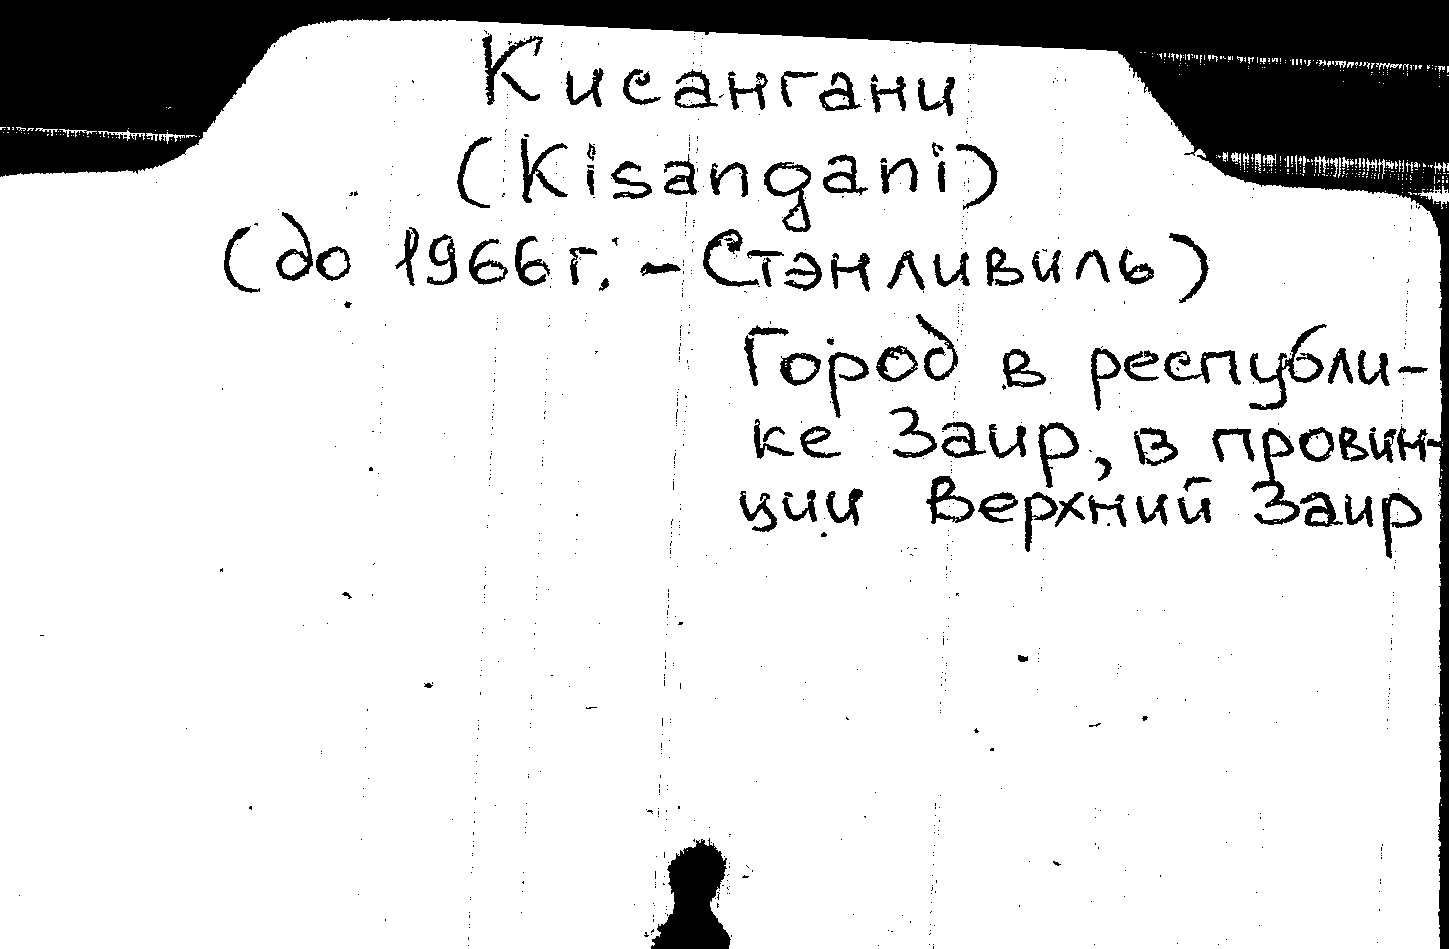 Кисангани
(Kisangani)
(до 1966 г. - Стэнливиль)
Город в республи-
ке Заир, в провин-
ции Верхний Заир